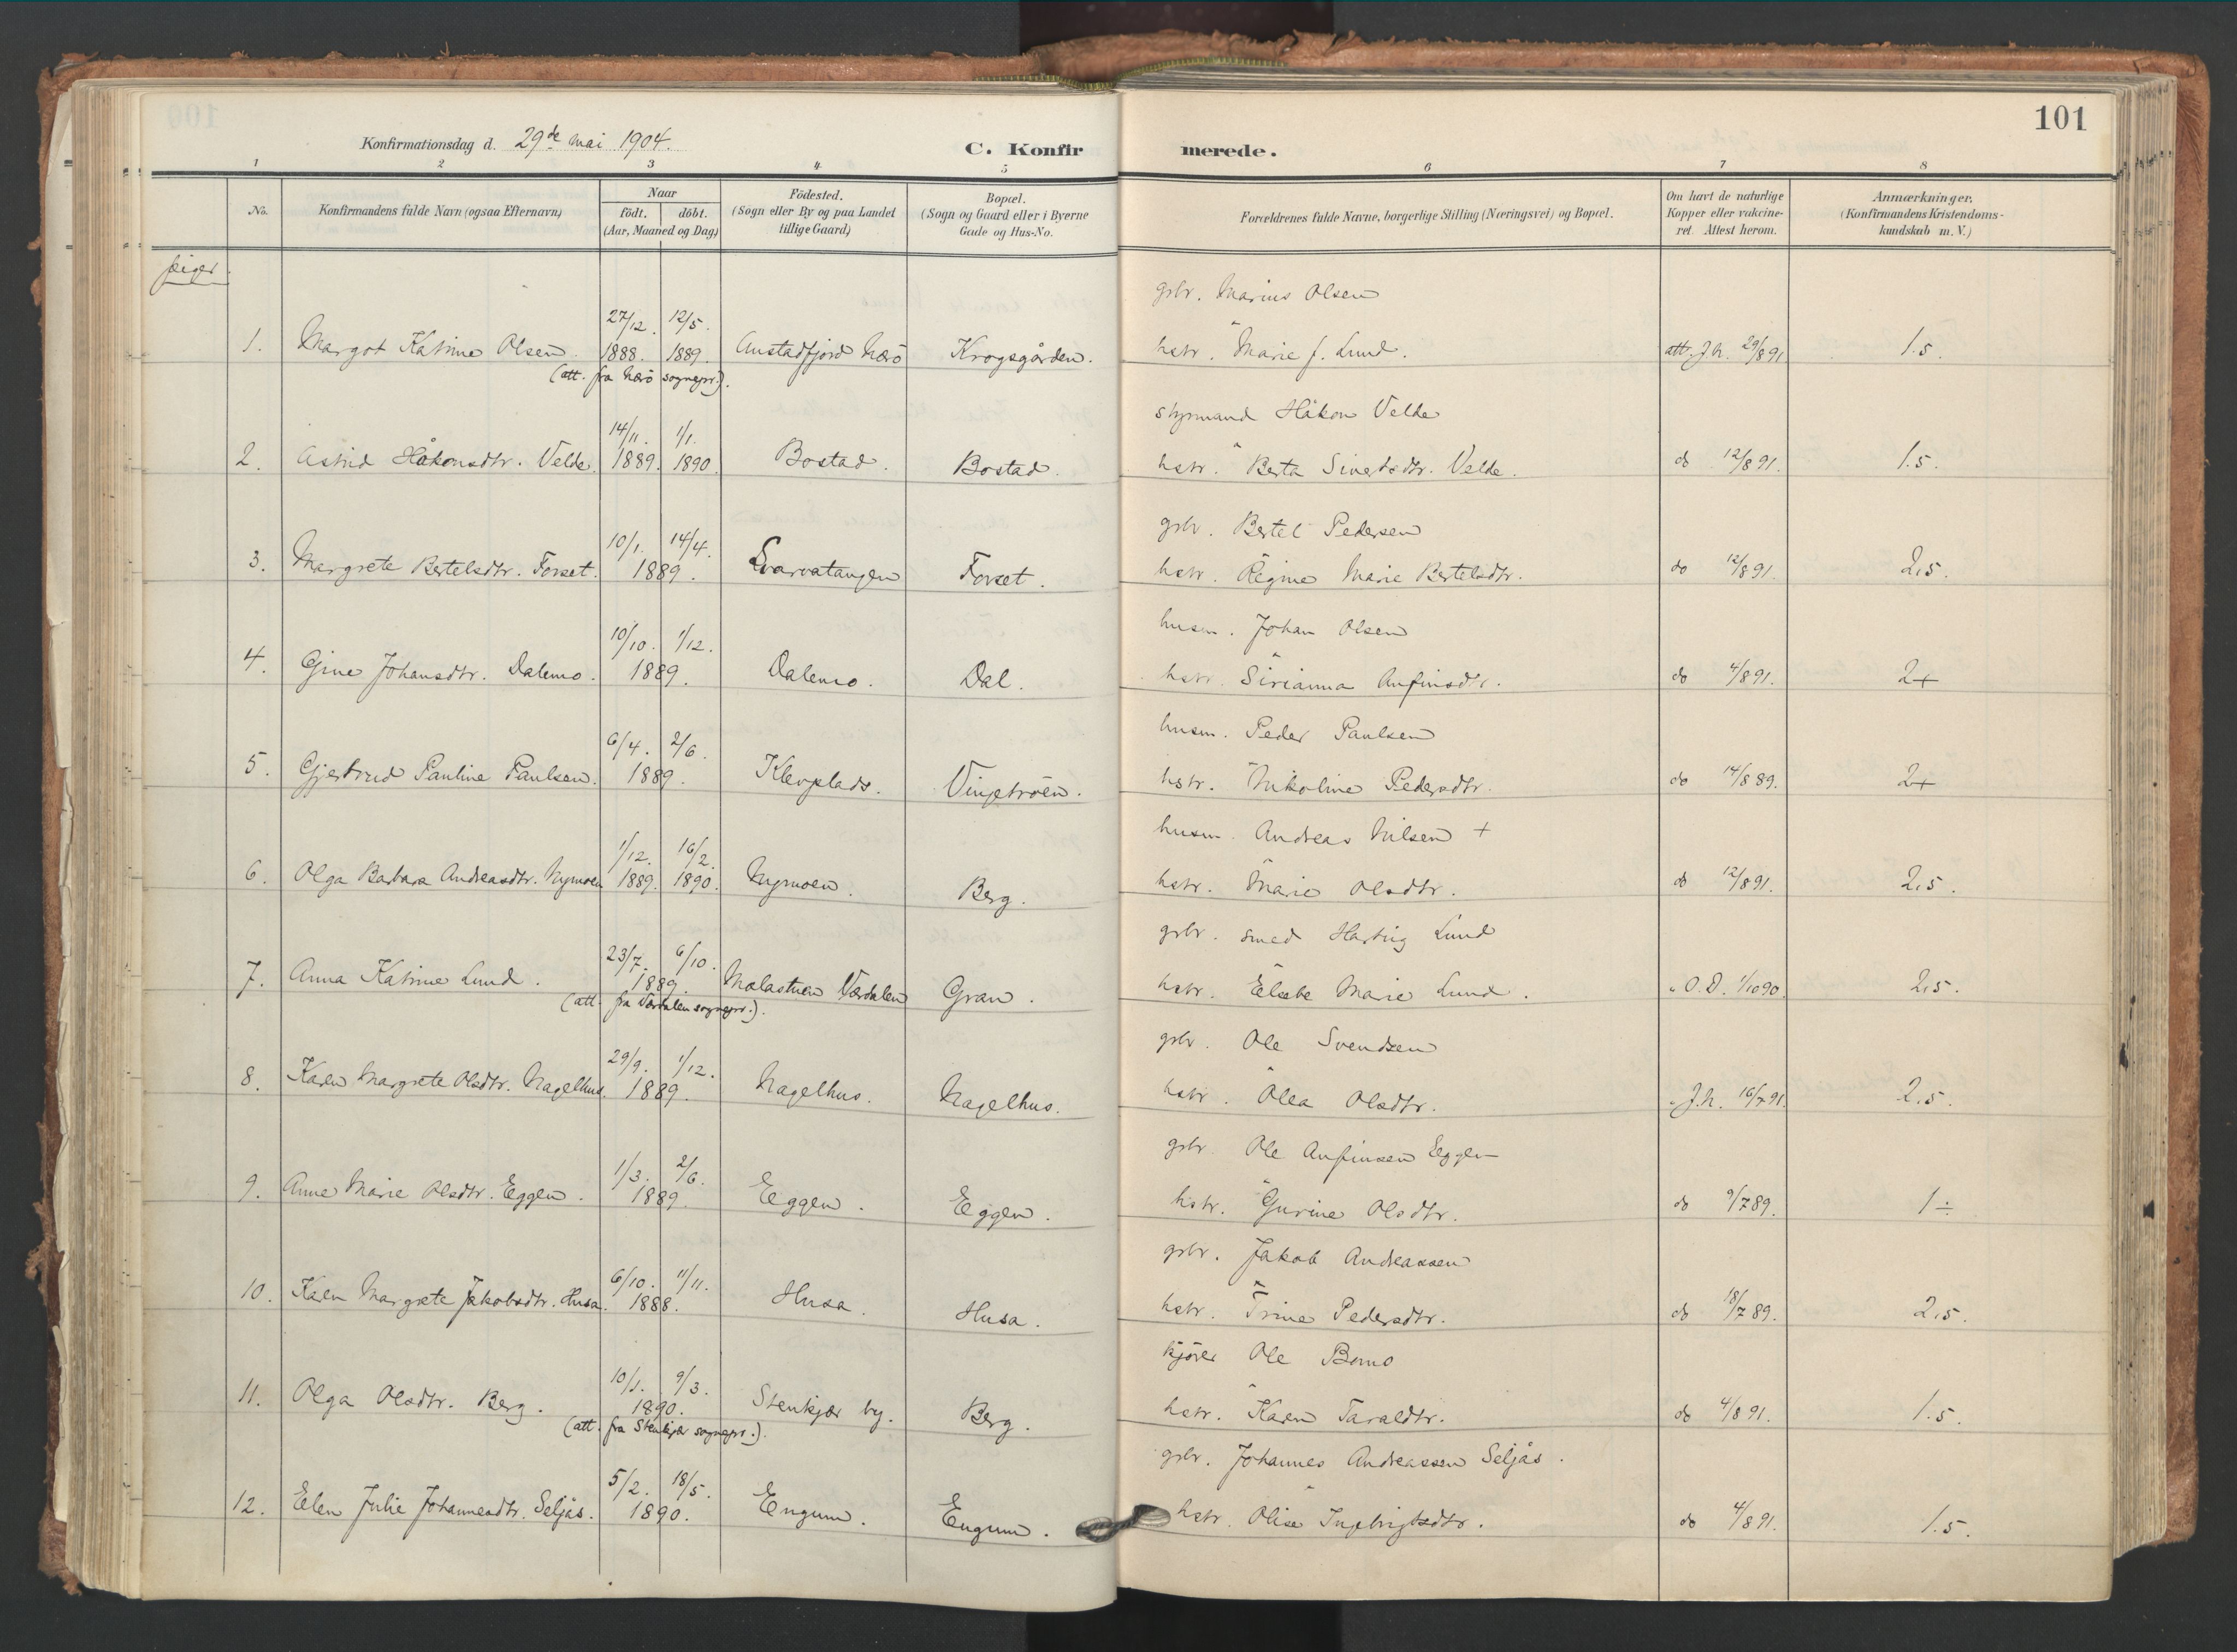 101
Konfirmationsdag d. 29de mai 1904.
C. Konfirmerede.
1 2 3 4 5 6 7 8
No.
Konfirmandens fulde Navn (ogsaa Efternavn)
Naar
födt. döbt.
(Aar, Maaned og Dag)
Födested.
(Sogn eller By og paa Landet
tillige Gaard)
Bopæl.
(Sogn og Gaard eller i Byerne
Gade og Hus-No.
Forældrenes fulde Navne, borgerlige Stilling (Næringsvei) og Bopæl.
Om havt de naturlige
Kopper eller vakcine-
ret. Attest herom.
Anmærkninger.
(Konfirmandens Kristendoms-
kundskab m. V.)
piger.
grbr. Marius Olsen
27/12. 12/5.
1. Margot Katrine Olsen. 1888. 1889. Anstadfjord Nærö Krogsgården. hstr. Marie f. Lund. att. J.N. 29/8 91 1.5.
(att. fra Nærö sognepr.).
styrmand Håkon Velde
14/11. 1/1.
2. Astrid Håkonsdtr. Velde. 1889. 1890. Bostad. Bostad. hstr. Berta Sivertsdtr. Velde. do 12/8 91. 1.5.
grbr. Bertel Pedersen
10/1. 14/4.
3. Margrete Bertelsdtr. Forset. 1889. Svarvatangen Forset. hstr. Regine Marie Bertelsdtr. do 12/8 91. 2,5.
husm. Johan Olsen
10/10. 1/12.
4. Gine Johansdtr. Dalemo. 1889. Dalemo. Dal. hstr. Sirianna Anfinsdtr. do 4/8 91. 2+
husm. Peder Paulsen
6/4. 2/6.
5. Gjertrud Pauline Paulsen. 1889. Klevplads. Vinjetröen. hstr. Nikoline Pedersdtr. do 14/8 89. 2+
husm. Andreas Nilsen +
1/12. 16/2.
6. Olga Barbara Andreasdtr. Nymoen 1889. 1890. Nymoen. Berg. hstr. Marie Olsdtr. do 12/8 91. 2,5.
grbr. smed Hartvig Lund
23/7. 6/10.
7. Anna Katrine Lund. 1889. Molastuen Værdalen Gran. hstr. Elsebe Marie Lund. " O.D. 1/10 90. 2,5.
(att. fra Værdalen sognepr.).
grbr. Ole Svendsen
29/9. 1/12.
8. Karen Margrete Olsdtr. Nagelhus. 1889. Nagelhus. Nagelhus. hstr. Olea Olsdtr. " J.N. 16/7 91. 2.5.
grbr. Ole Anfinsen Eggen
1/3. 2/6.
9. Anne Marie Olsdtr. Eggen. 1889. Eggen. Eggen. hstr. Gurine Olsdtr. do 9/7 89. 1÷
grbr. Jakob Andreassen
6/10. 11/11.
10. Karen Margrete Jakobsdtr. Husa. 1888. Husa. Husa. hstr. Trine Pedersdtr. do 18/7 89. 2.5.
kjörer Ole Bomo
10/1. 9/3.
11. Olga Olsdtr. Berg. 1890. Stenkjær by. Berg. hstr. Karen Taraldtr. do 4/8 91. 1.5.
(att. fra Stenkjær sognepr.).
grbr. Johannes Andreassen Seljås.
5/2. 18/5.
12. Elen Julie Johannesdtr. Seljås. 1890. Engum. Engum. hstr. Olise Ingebrigtsdtr. do 4/8 91. 1.5.